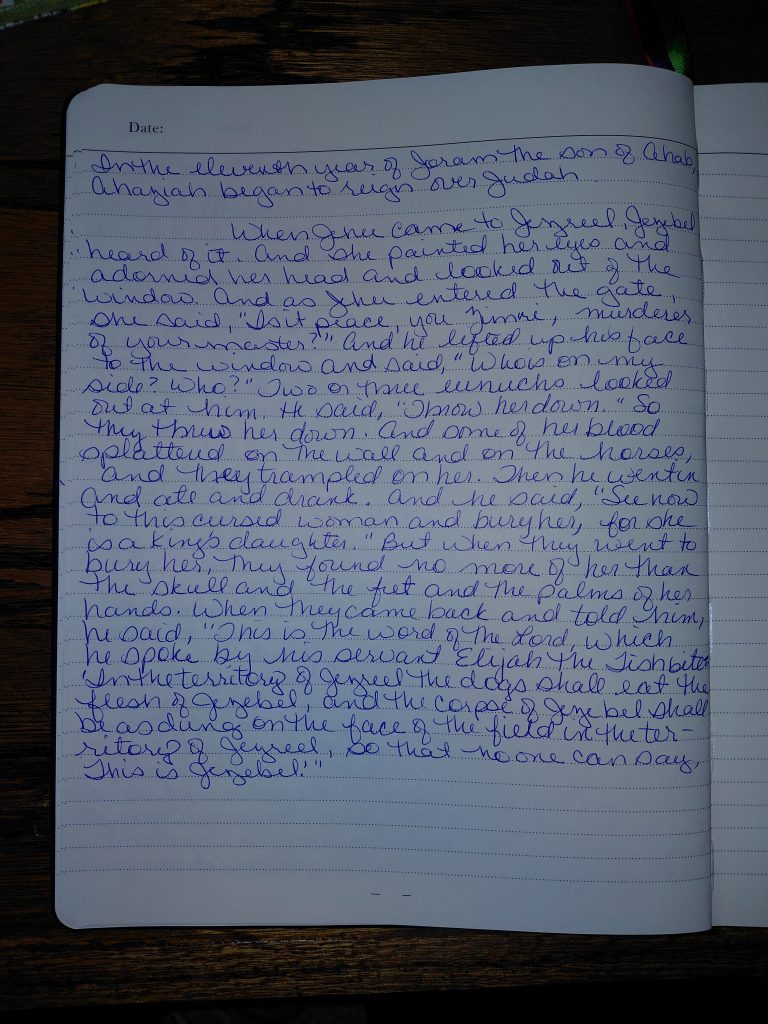 Date:
In the eleventh year of Joram the son of Ahab,
Ahaziah began to reign over Judah
When Jehu came to Jezreel, Jezebel
heard of it. And she painted her eyes and
adorned her head and looked out of the
window. And as Jehu entered the gate,
she said, "Is it peace, you Zimri, murderer
of your master?" And he lifted up his face
to the window and said, "Who is on my
side? Who?" Two or three eunuchs looked
out at him. He said, "Throw her down." So
they threw her down. And some of her blood
splattered on the wall and on the horses,
and they trampled on her. Then he went in
and ate and drank. And he said, "See now
to this cursed woman and bury her, for she
is a king's daughter." But when they went to
bury her, they found no more of her than
the skull and the feet and the palms of her
hands. When they came back and told him,
he said, "This is the word of the Lord, which
he spoke by his servant Elijah the Tishbite
'In the territory of Jezreel the dogs shall eat the
flesh of Jezebel, and the corpse of Jezebel shall
be as dung on the face of the field in the ter-
ritory of Jezreel, so that no one can say,
This is Jezebel.'"